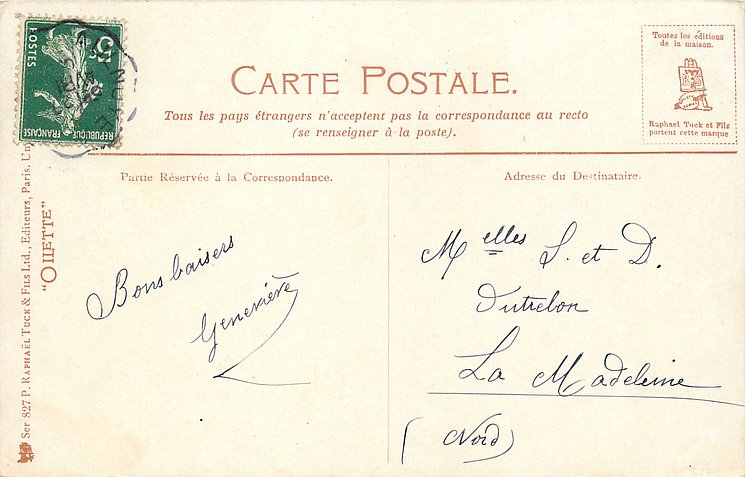 5c
POSTES
REPUBLIQUE
FRANÇAISE
CARTE POSTALE.
Tous les pays étrangers n'acceptent pas la correspondance au recto
(se renseigner à la poste).
Toutes les éditions
de la maison.
Raphael Tuck et Fils
portent cette marque
Partie Réservée à la Correspondance.
Adresse du Destinataire.
Bons baisers
Geneviève
Melles S. et D.
Dutrelon
La Madeleine
(Nord)
"OILETTE"
Ser 827 P. RAPHAËL TUCK & FILS LTD., Editeurs, Paris.